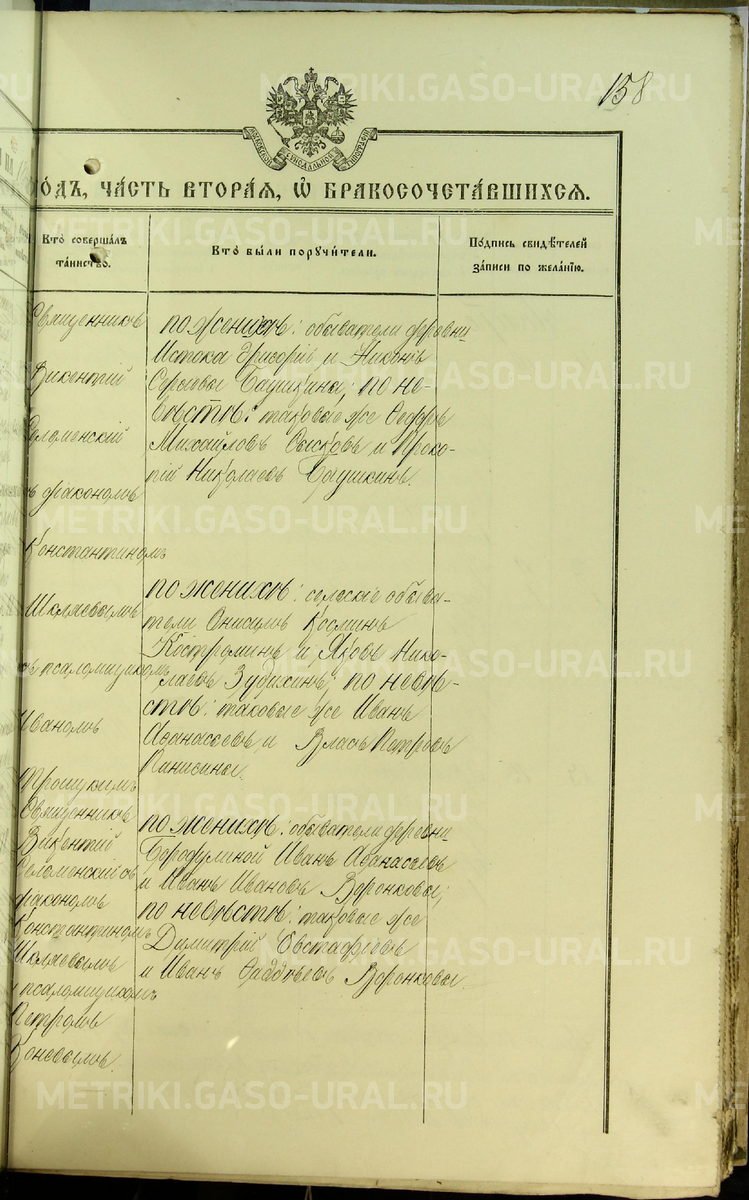 158
МОСКОВСКОЙ СѴНОДАЛЬНОЙ ТИПОГРАФІИ
ГОДЪ, ЧА́СТЬ ВТОРА́Я, Ѡ҆ БРАКОСОЧЕТА́ВШИХСЯ.
Кто̀ соверша́лъ
та́инство.
Кто̀ бы́ли пору́чи́тели.
По́дпись свидѣ́телей
за́писи по жела́нїю.
Священникъ
Викентій
Саломенскій
съ діакономъ
Константиномъ
Шиляевымъ
и псаломщикомъ
Иваномъ
Троицкимъ
по женихѣ: обыватели деревни
Истока Григорій и Никонъ
Сергѣевы Баушкины; по не-
вѣстѣ: таковые же Ѳедоръ
Михайловъ и Проко-
пій Николаевъ Баушкинъ.
по женихѣ: сельскіе обыва-
тели Анисимъ Козминъ
Костроминъ и Яковъ Нико-
лаевъ невѣ-
стѣ: таковые же Иванъ
Аѳанасьевъ и Власъ Петровъ
Священникъ
Викентій
Саломенскій съ
діакономъ
Константиномъ
Шиляевымъ
и псаломщикомъ
Петромъ
Коневымъ.
по женихѣ: обыватели деревни
Бородулиной Иванъ Аѳанасьевъ
и Иванъ Ивановъ Воронковы;
по невѣстѣ: таковые же
Димитрій Евстафіевъ
и Иванъ Ѳаддѣевъ Воронковы.
METRIKI.GASO-URAL.RU